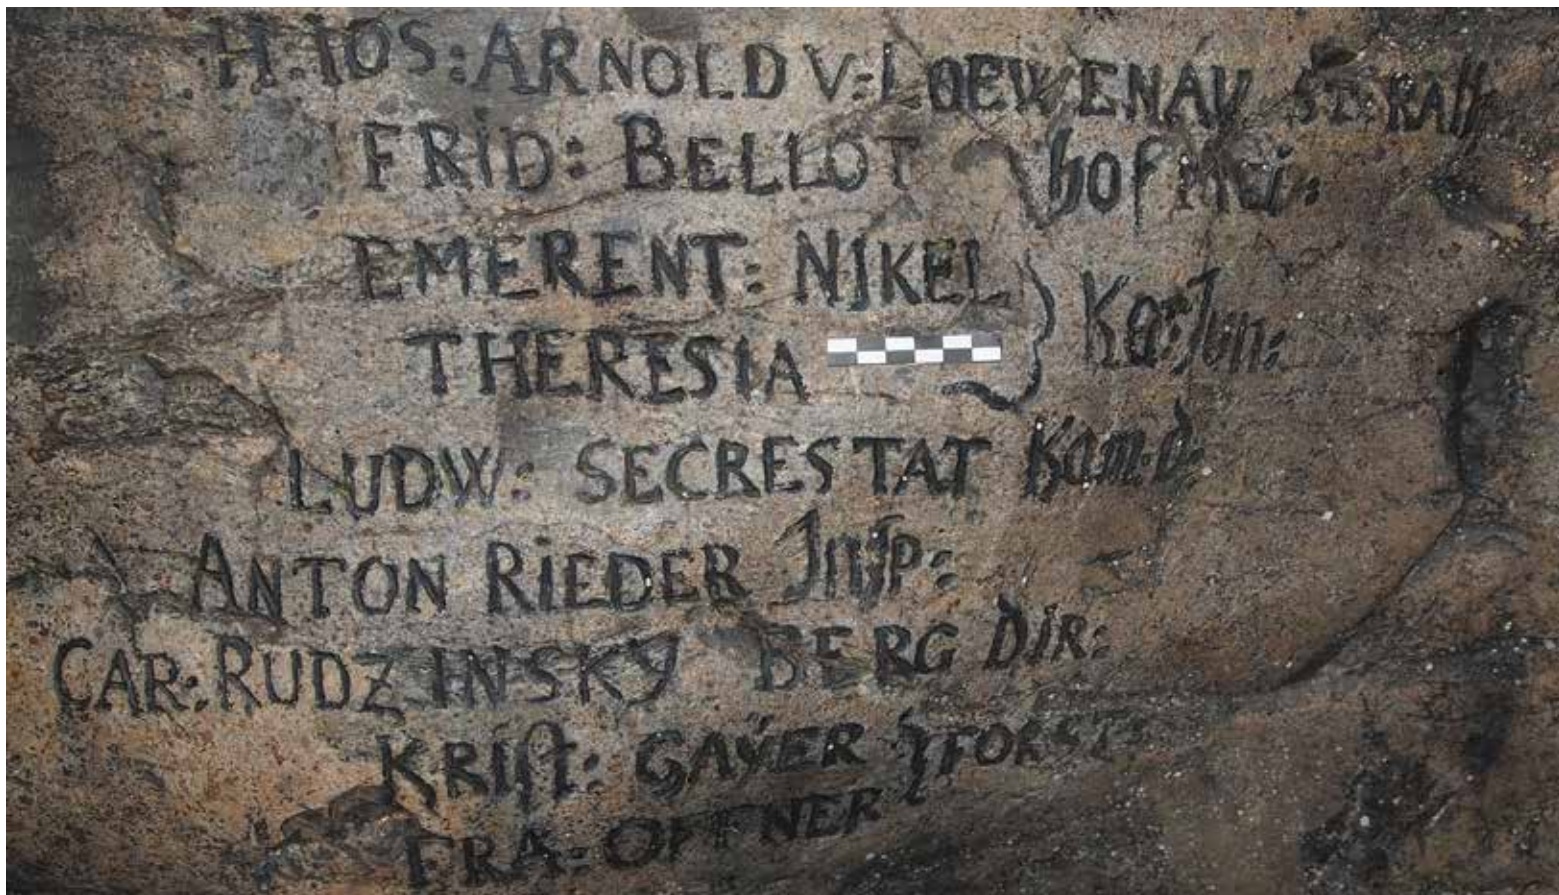 H. IOS: ARNOLD V: LOEWENAU
FRID: BELLOT hof
EMERENT: NIKEL
THERESIA
LUDW: SECRESTAT Kam. d.
ANTON RIEDER Insp:
CAR: RUDZINSKY BERG DIR:
KRIST: GAŸER FORST
FRA: OFFNER